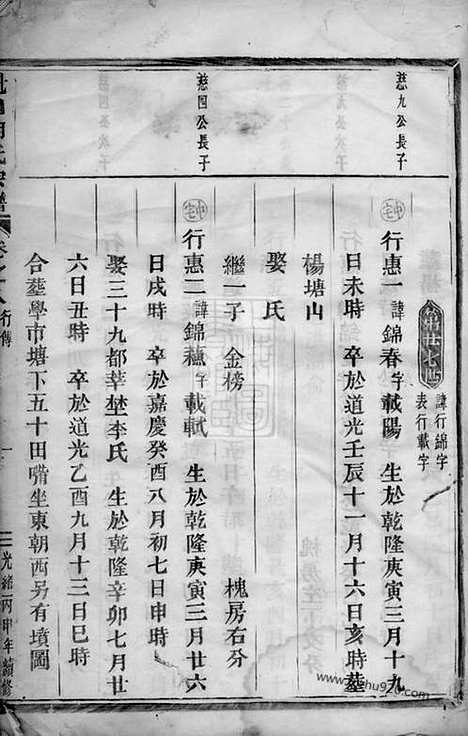 慈九公長子
慈四公長子
第廿七世
諱行錦字
表行載字
行惠一諱錦春字載陽 生於乾隆庚寅三月十九
日未時 卒於道光壬辰十一月十六日亥時 葬
楊塘山
娶氏
繼一子 金榜 槐房右分
行惠二諱錦蘓字載軾 生於乾隆庚寅三月廿六
日戌時 卒於嘉慶癸酉八月初七日申時
娶三十九都莘埜李氏 生於乾隆辛卯七月廿
六日丑時 卒於道光乙酉九月十三日巳時
合葬學市塘下五十田嘴坐東朝西另有墳圖
氏宗譜
行傳
一
光緒丙申年續修